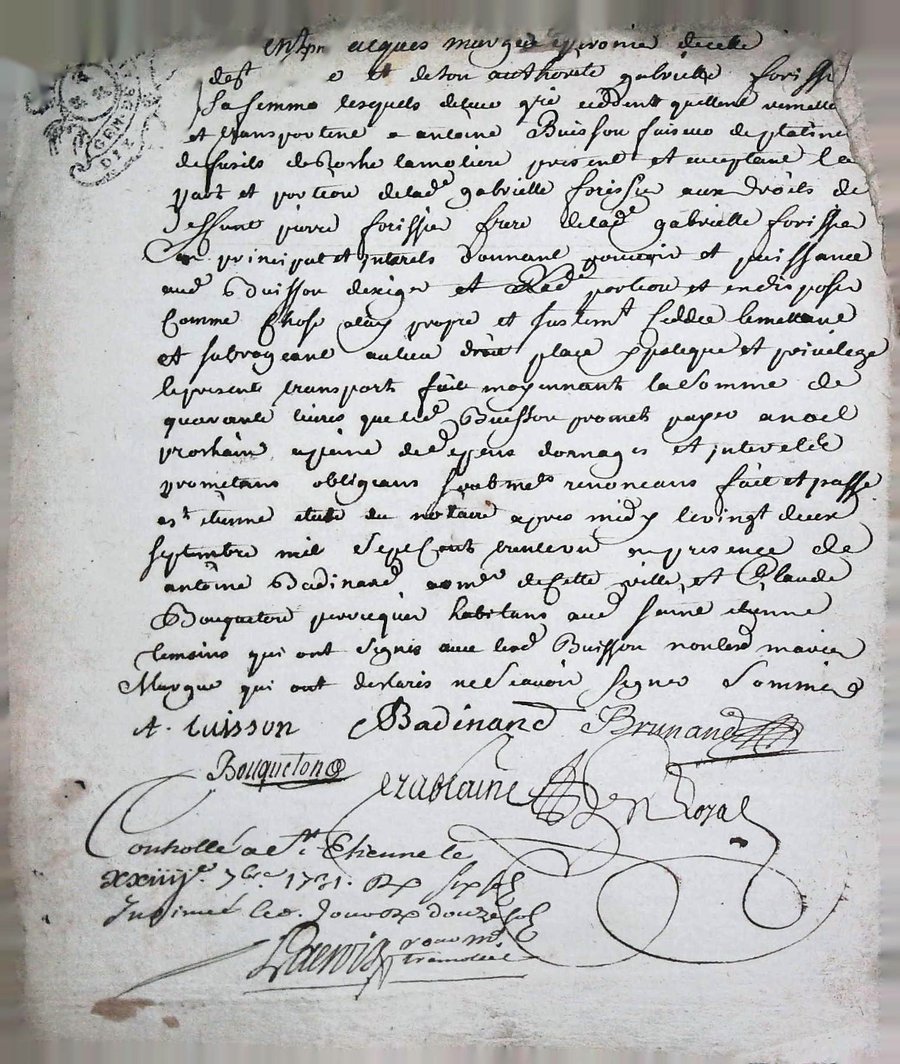 acques murgue decelle
de et de son authorité gabrielle foriss
Sa femme lesquels de leur gré ceddent quittent remette
et transportent a antoine Buisson faiseur de platine
de fusils de Roche lamoliere present et acceptant la
part et portion de lad.e gabrielle forissier aux droits de
deffunt pierre forissier frere de lad.e gabrielle forissier
En principal et interets donnant pouvoir et puissance
aud Buisson dexiger et lad.e portion et en disposer
Comme Chose a luy propre et Ceddee le mettant
et subrogeant au lieu droit place ypoteque et privilege
le present transport fait moyennant la Somme de
quarante livres que led. Buisson promet payer a noel
prochain a peine de depens domages et interests
promettans obligeans renonceans fait et passé
a s.t etienne etude du notaire apres midy le vingt deux
septembre mil Sept Cent trente un en presence de
antoine Badinand de Cette ville et Claude
Bouqueton perruquier habitans aud saint etienne
temoins qui ont Signés avec led Buisson non lesd mariés
Murgue qui ont declarés ne Scavoir Signer Sommés
A. buisson Badinand Brunand
Bouqueton
Controllé a St. Etienne le
xxiiij.e 7bre 1731. Rx six sol
Insinué led. Jour Rx douze sol